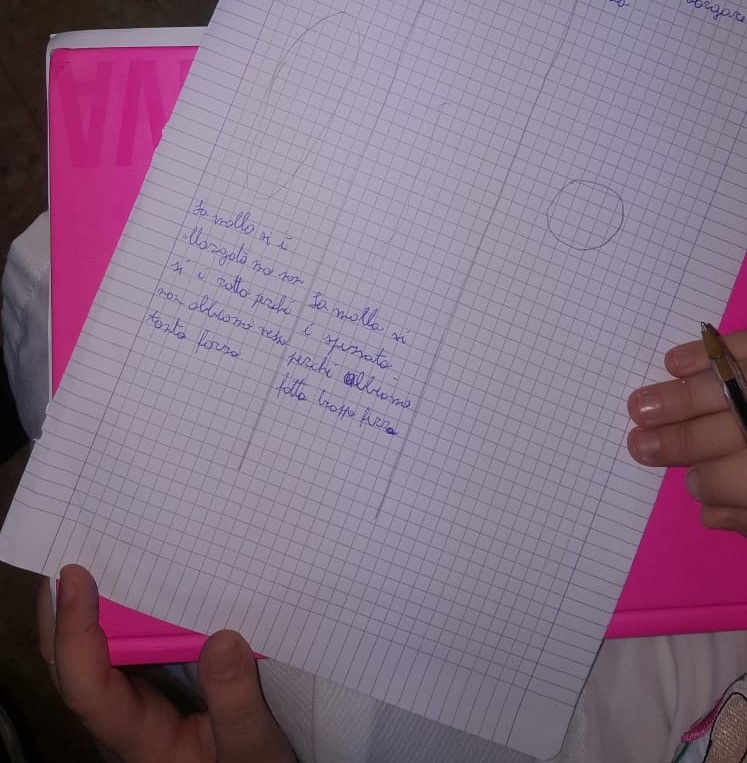 La molla si è
allargata ma non
si è rotta perchè
non abbiamo
tanta forza
La molla si
è spezzata
perchè abbiamo
fatto troppa forza